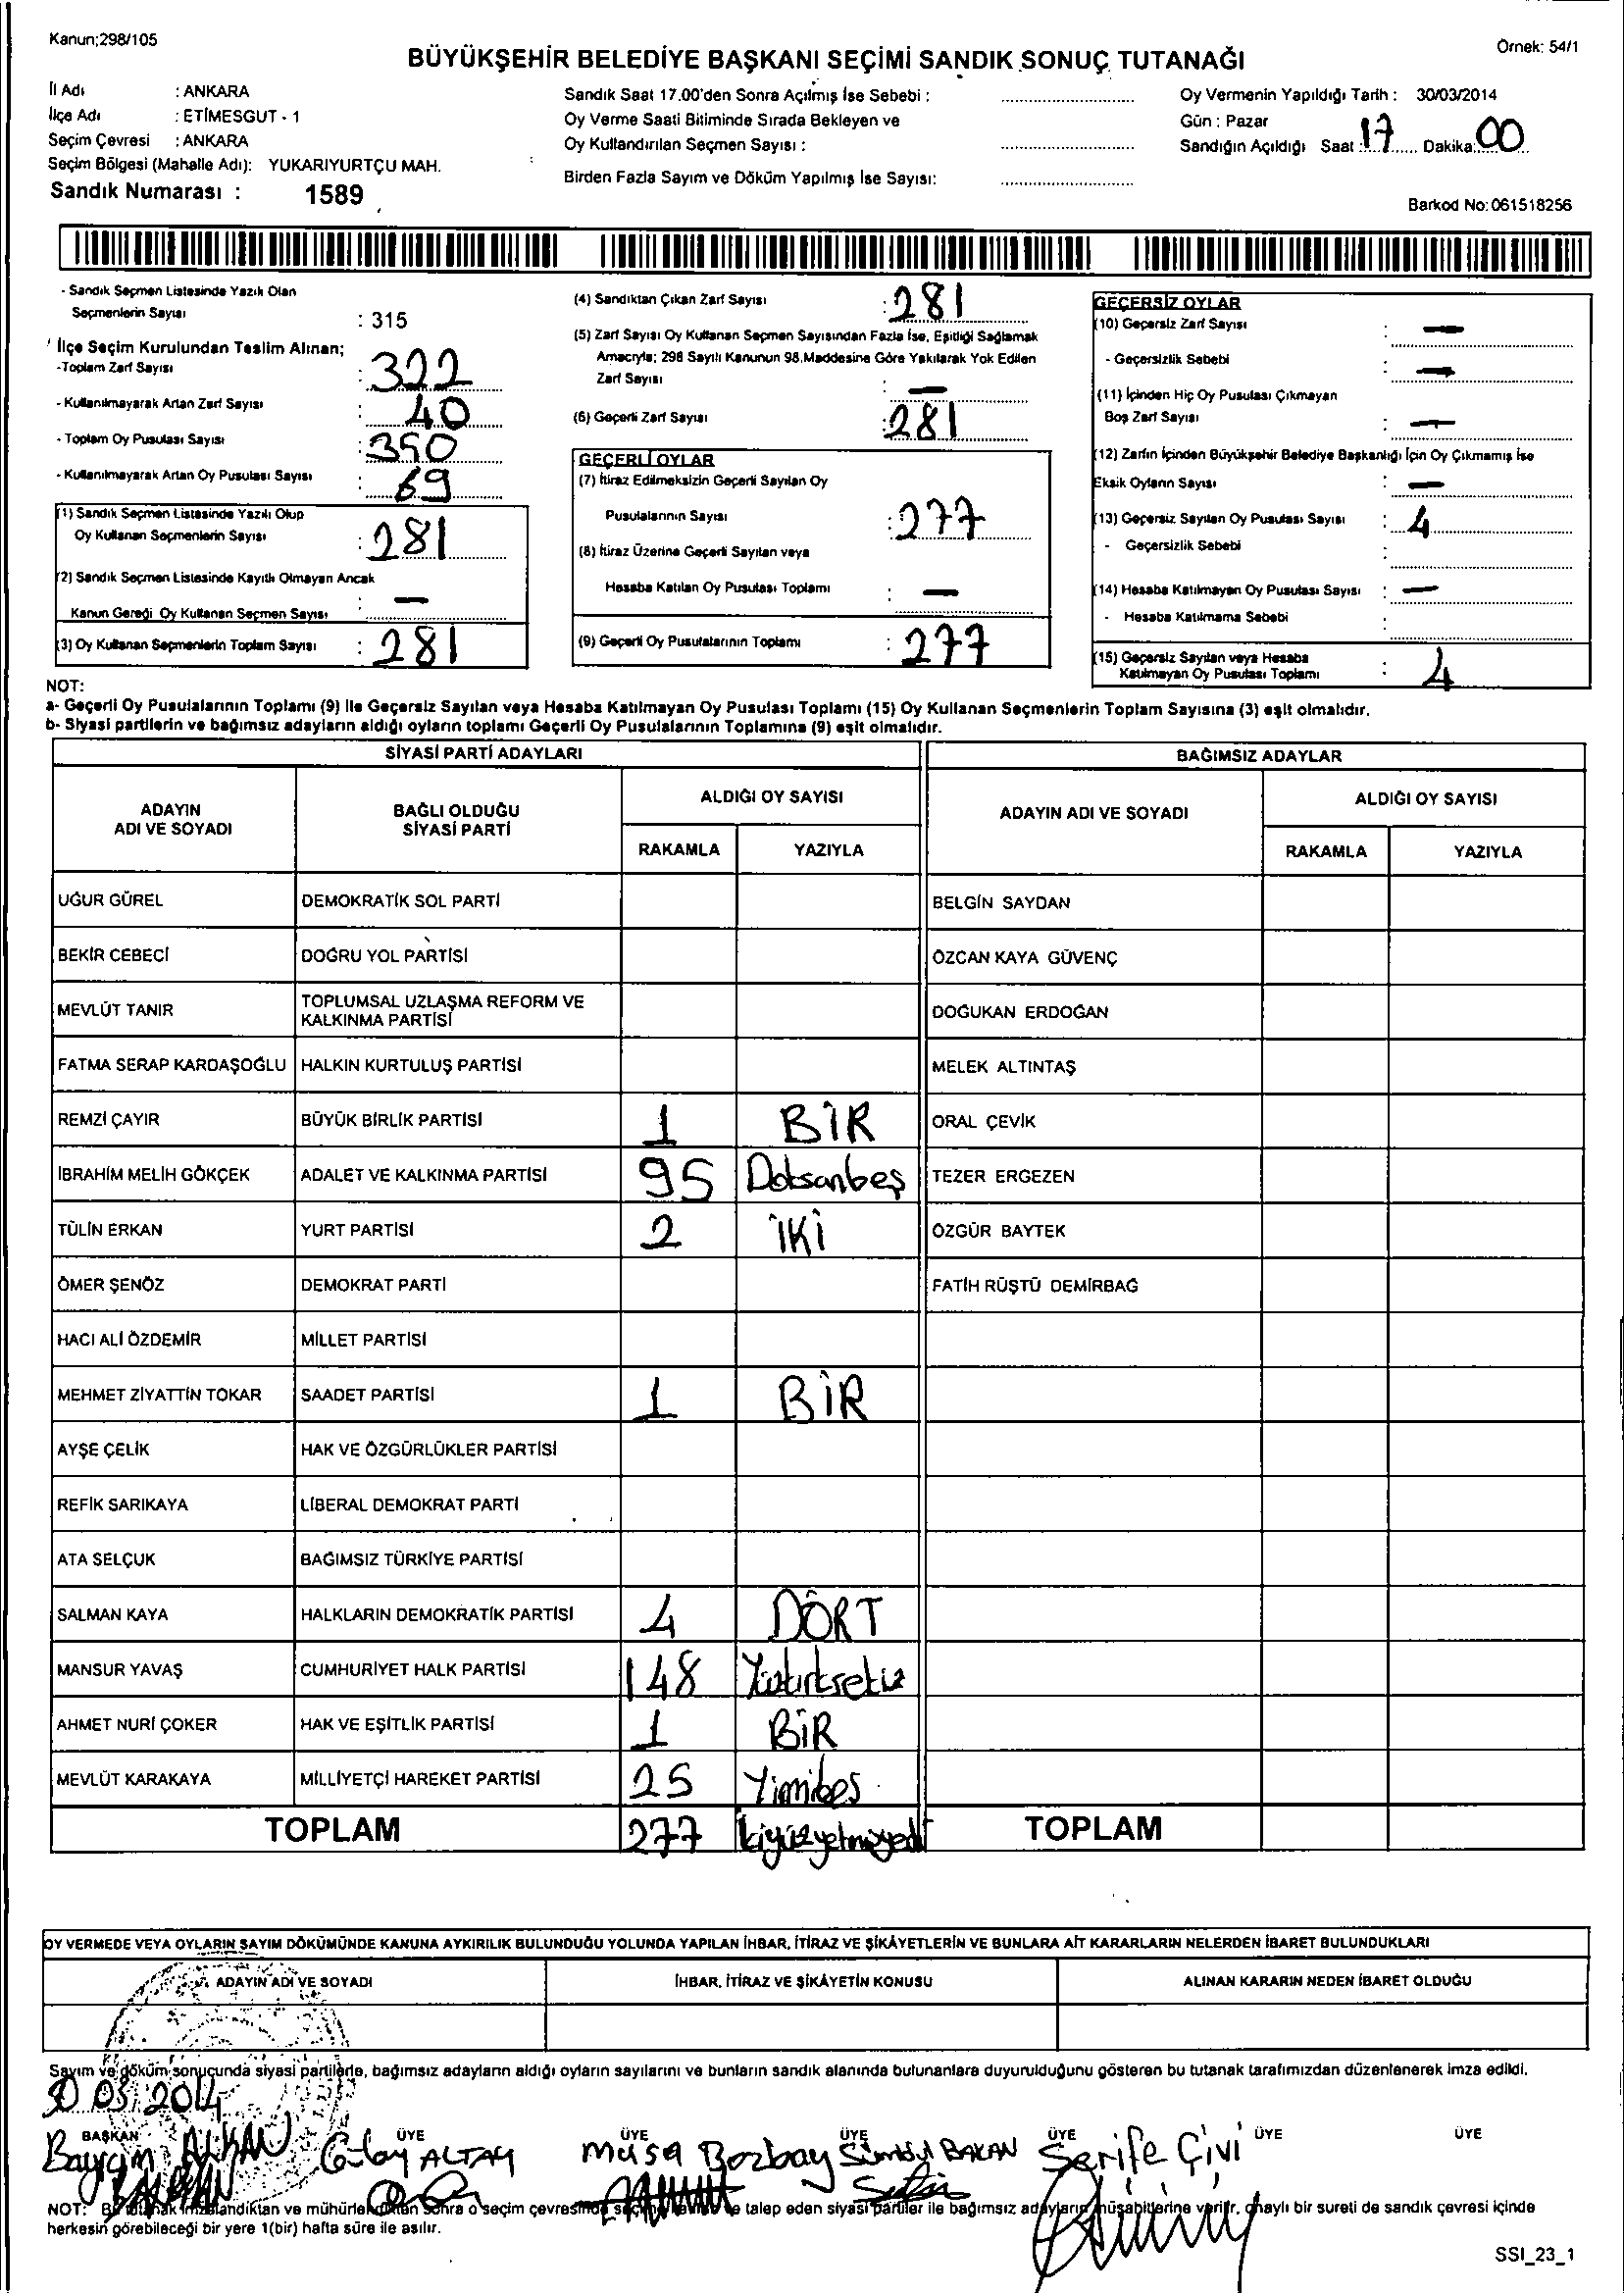 Kanun;298/105
Örnek: 54/1
BÜYÜKŞEHİR BELEDİYE BAŞKANI SEÇİMİ SANDIK SONUÇ TUTANAĞI
İl Adı : ANKARA
İlçe Adı : ETİMESGUT - 1
Seçim Çevresi : ANKARA
Seçim Bölgesi (Mahalle Adı): YUKARIYURTÇU MAH.
Sandık Numarası : 1589
Sandık Saat 17.00'den Sonra Açılmış İse Sebebi :
Oy Verme Saati Bitiminde Sırada Bekleyen ve
Oy Kullandırılan Seçmen Sayısı :
Birden Fazla Sayım ve Döküm Yapılmış İse Sayısı:
Oy Vermenin Yapıldığı Tarih : 30/03/2014
Gün : Pazar
Sandığın Açıldığı Saat : 17 Dakika: 00
Barkod No: 061518256
- Sandık Seçmen Listesinde Yazılı Olan
Seçmenlerin Sayısı : 315
İlçe Seçim Kurulundan Teslim Alınan;
-Toplam Zarf Sayısı : 322
- Kullanılmayarak Artan Zarf Sayısı : 40
- Toplam Oy Pusulası Sayısı : 350
- Kullanılmayarak Artan Oy Pusulası Sayısı : 69
(1) Sandık Seçmen Listesinde Yazılı Olup
Oy Kullanan Seçmenlerin Sayısı : 281
(2) Sandık Seçmen Listesinde Kayıtlı Olmayan Ancak
Kanun Gereği Oy Kullanan Seçmen Sayısı : —
(3) Oy Kullanan Seçmenlerin Toplam Sayısı : 281
(4) Sandıktan Çıkan Zarf Sayısı : 281
(5) Zarf Sayısı Oy Kullanan Seçmen Sayısından Fazla İse, Eşitliği Sağlamak
Amacıyla; 298 Sayılı Kanunun 98.Maddesine Göre Yakılarak Yok Edilen
Zarf Sayısı : —
(6) Geçerli Zarf Sayısı : 281
GEÇERLİ OYLAR
(7) İtiraz Edilmeksizin Geçerli Sayılan Oy
Pusulalarının Sayısı : 277
(8) İtiraz Üzerine Geçerli Sayılan veya
Hesaba Katılan Oy Pusulası Toplamı : —
(9) Geçerli Oy Pusulalarının Toplamı : 277
GEÇERSİZ OYLAR
(10) Geçersiz Zarf Sayısı : —
- Geçersizlik Sebebi : —
(11) İçinden Hiç Oy Pusulası Çıkmayan
Boş Zarf Sayısı : —
(12) Zarfın İçinden Büyükşehir Belediye Başkanlığı İçin Oy Çıkmamış İse
Eksik Oyların Sayısı : —
(13) Geçersiz Sayılan Oy Pusulası Sayısı : 4
- Geçersizlik Sebebi :
(14) Hesaba Katılmayan Oy Pusulası Sayısı : —
- Hesaba Katılmama Sebebi :
(15) Geçersiz Sayılan veya Hesaba
Katılmayan Oy Pusulası Toplamı : 4
NOT:
a- Geçerli Oy Pusulalarının Toplamı (9) ile Geçersiz Sayılan veya Hesaba Katılmayan Oy Pusulası Toplamı (15) Oy Kullanan Seçmenlerin Toplam Sayısına (3) eşit olmalıdır.
b- Siyasi partilerin ve bağımsız adayların aldığı oyların toplamı Geçerli Oy Pusulalarının Toplamına (9) eşit olmalıdır.
SİYASİ PARTİ ADAYLARI BAĞIMSIZ ADAYLAR
ADAYIN ADI VE SOYADI BAĞLI OLDUĞU SİYASİ PARTİ ALDIĞI OY SAYISI ADAYIN ADI VE SOYADI ALDIĞI OY SAYISI
RAKAMLA YAZIYLA RAKAMLA YAZIYLA
UĞUR GÜREL DEMOKRATİK SOL PARTİ BELGİN SAYDAN
BEKİR CEBECİ DOĞRU YOL PARTİSİ ÖZCAN KAYA GÜVENÇ
MEVLÜT TANIR TOPLUMSAL UZLAŞMA REFORM VE KALKINMA PARTİSİ DOĞUKAN ERDOĞAN
FATMA SERAP KARDAŞOĞLU HALKIN KURTULUŞ PARTİSİ MELEK ALTINTAŞ
REMZİ ÇAYIR BÜYÜK BİRLİK PARTİSİ 1 BİR ORAL ÇEVİK
İBRAHİM MELİH GÖKÇEK ADALET VE KALKINMA PARTİSİ 95 Doksanbeş TEZER ERGEZEN
TÜLİN ERKAN YURT PARTİSİ 2 İKİ ÖZGÜR BAYTEK
ÖMER ŞENÖZ DEMOKRAT PARTİ FATİH RÜŞTÜ DEMİRBAĞ
HACI ALİ ÖZDEMİR MİLLET PARTİSİ
MEHMET ZİYATTİN TOKAR SAADET PARTİSİ 1 BİR
AYŞE ÇELİK HAK VE ÖZGÜRLÜKLER PARTİSİ
REFİK SARIKAYA LİBERAL DEMOKRAT PARTİ
ATA SELÇUK BAĞIMSIZ TÜRKİYE PARTİSİ
SALMAN KAYA HALKLARIN DEMOKRATİK PARTİSİ 4 DÖRT
MANSUR YAVAŞ CUMHURİYET HALK PARTİSİ 148
AHMET NURİ ÇOKER HAK VE EŞİTLİK PARTİSİ 1 BİR
MEVLÜT KARAKAYA MİLLİYETÇİ HAREKET PARTİSİ 25 Yirmibeş
TOPLAM 277 ikiyüzyetmişyedi TOPLAM
OY VERMEDE VEYA OYLARIN SAYIM DÖKÜMÜNDE KANUNA AYKIRILIK BULUNDUĞU YOLUNDA YAPILAN İHBAR, İTİRAZ VE ŞİKÂYETLERİN VE BUNLARA AİT KARARLARIN NELERDEN İBARET BULUNDUKLARI
ADAYIN ADI VE SOYADI İHBAR, İTİRAZ VE ŞİKÂYETİN KONUSU ALINAN KARARIN NEDEN İBARET OLDUĞU
Sayım ve döküm sonucunda siyasi partilerle, bağımsız adayların aldığı oyların sayılarını ve bunların sandık alanında bulunanlara duyurulduğunu gösteren bu tutanak tarafımızdan düzenlenerek imza edildi.
30 03 2014
BAŞKAN ÜYE ÜYE ÜYE ÜYE ÜYE ÜYE
Bayram ALTAY Musa Bozbay BAKAN Şerife Çivi
NOT: Bu tutanak imzalandıktan ve mühürlendikten sonra o seçim çevresinde talep eden siyasi partiler ile bağımsız adayların müşahitlerine verilir, onaylı bir sureti de sandık çevresi içinde
herkesin görebileceği bir yere 1(bir) hafta süre ile asılır.
SSI_23_1